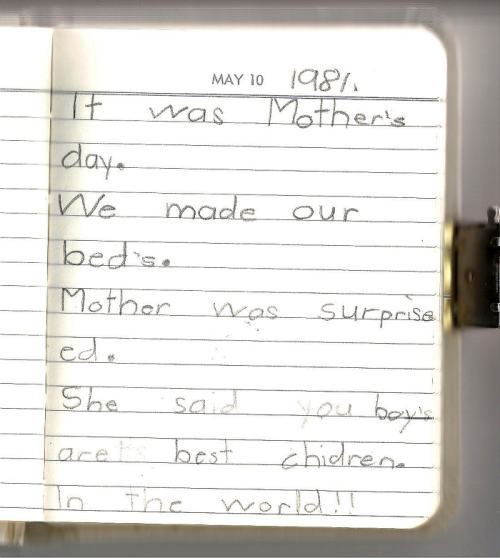 MAY 10 1981.
It was Mother's
day.
We made our
bed's.
Mother was surprise
ed.
She said you boy's
are best chidren.
In the world!!